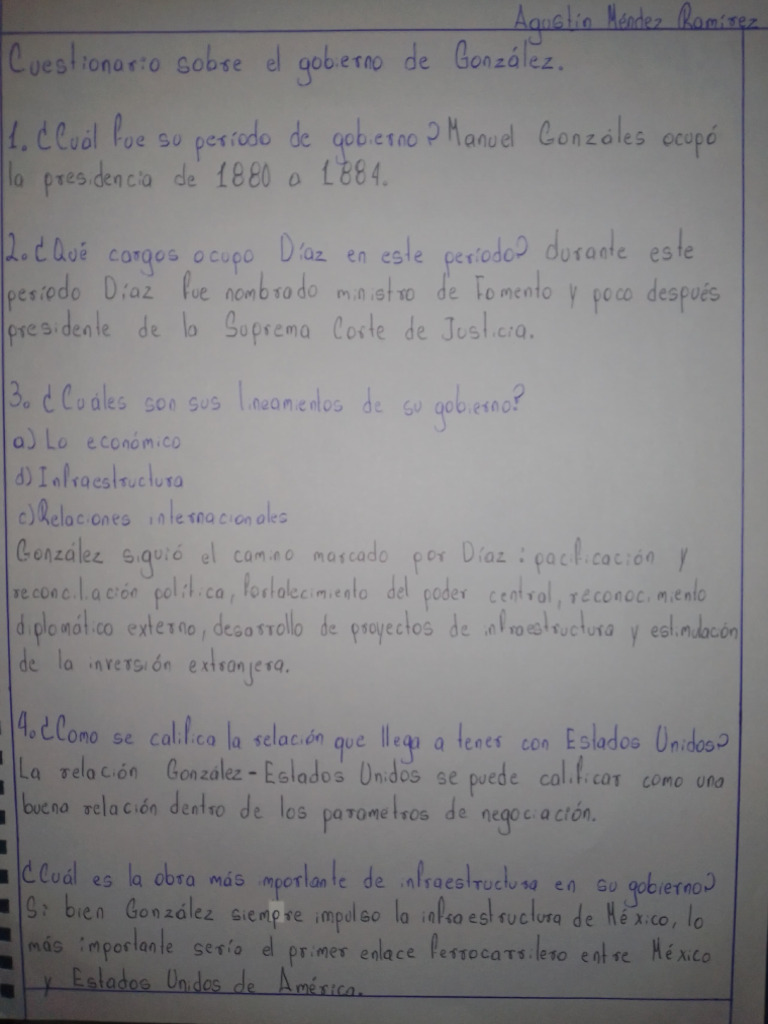 Agustín Méndez Ramírez
Cuestionario sobre el gobierno de González.
1. ¿Cuál fue su período de gobierno? Manuel Gonzáles ocupó
la presidencia de 1880 a 1884.
2. ¿Qué cargos ocupo Díaz en este período? durante este
período Díaz fue nombrado ministro de Fomento y poco después
presidente de la Suprema Corte de Justicia.
3. ¿Cuáles son sus lineamientos de su gobierno?
a) Lo económico
d) Infraestructura
c) Relaciones internacionales
González siguió el camino marcado por Díaz: pacificación y
reconciliación política, fortalecimiento del poder central, reconocimiento
diplomático externo, desarrollo de proyectos de infraestructura y estimulación
de la inversión extranjera.
4. ¿Como se califica la relación que llega a tener con Estados Unidos?
La relación González-Estados Unidos se puede calificar como una
buena relación dentro de los parametros de negociación.
¿Cuál es la obra más importante de infraestructura en su gobierno?
Si bien González siempre impulso la infraestructura de México, lo
más importante sería el primer enlace ferrocarrilero entre México
y Estados Unidos de América.